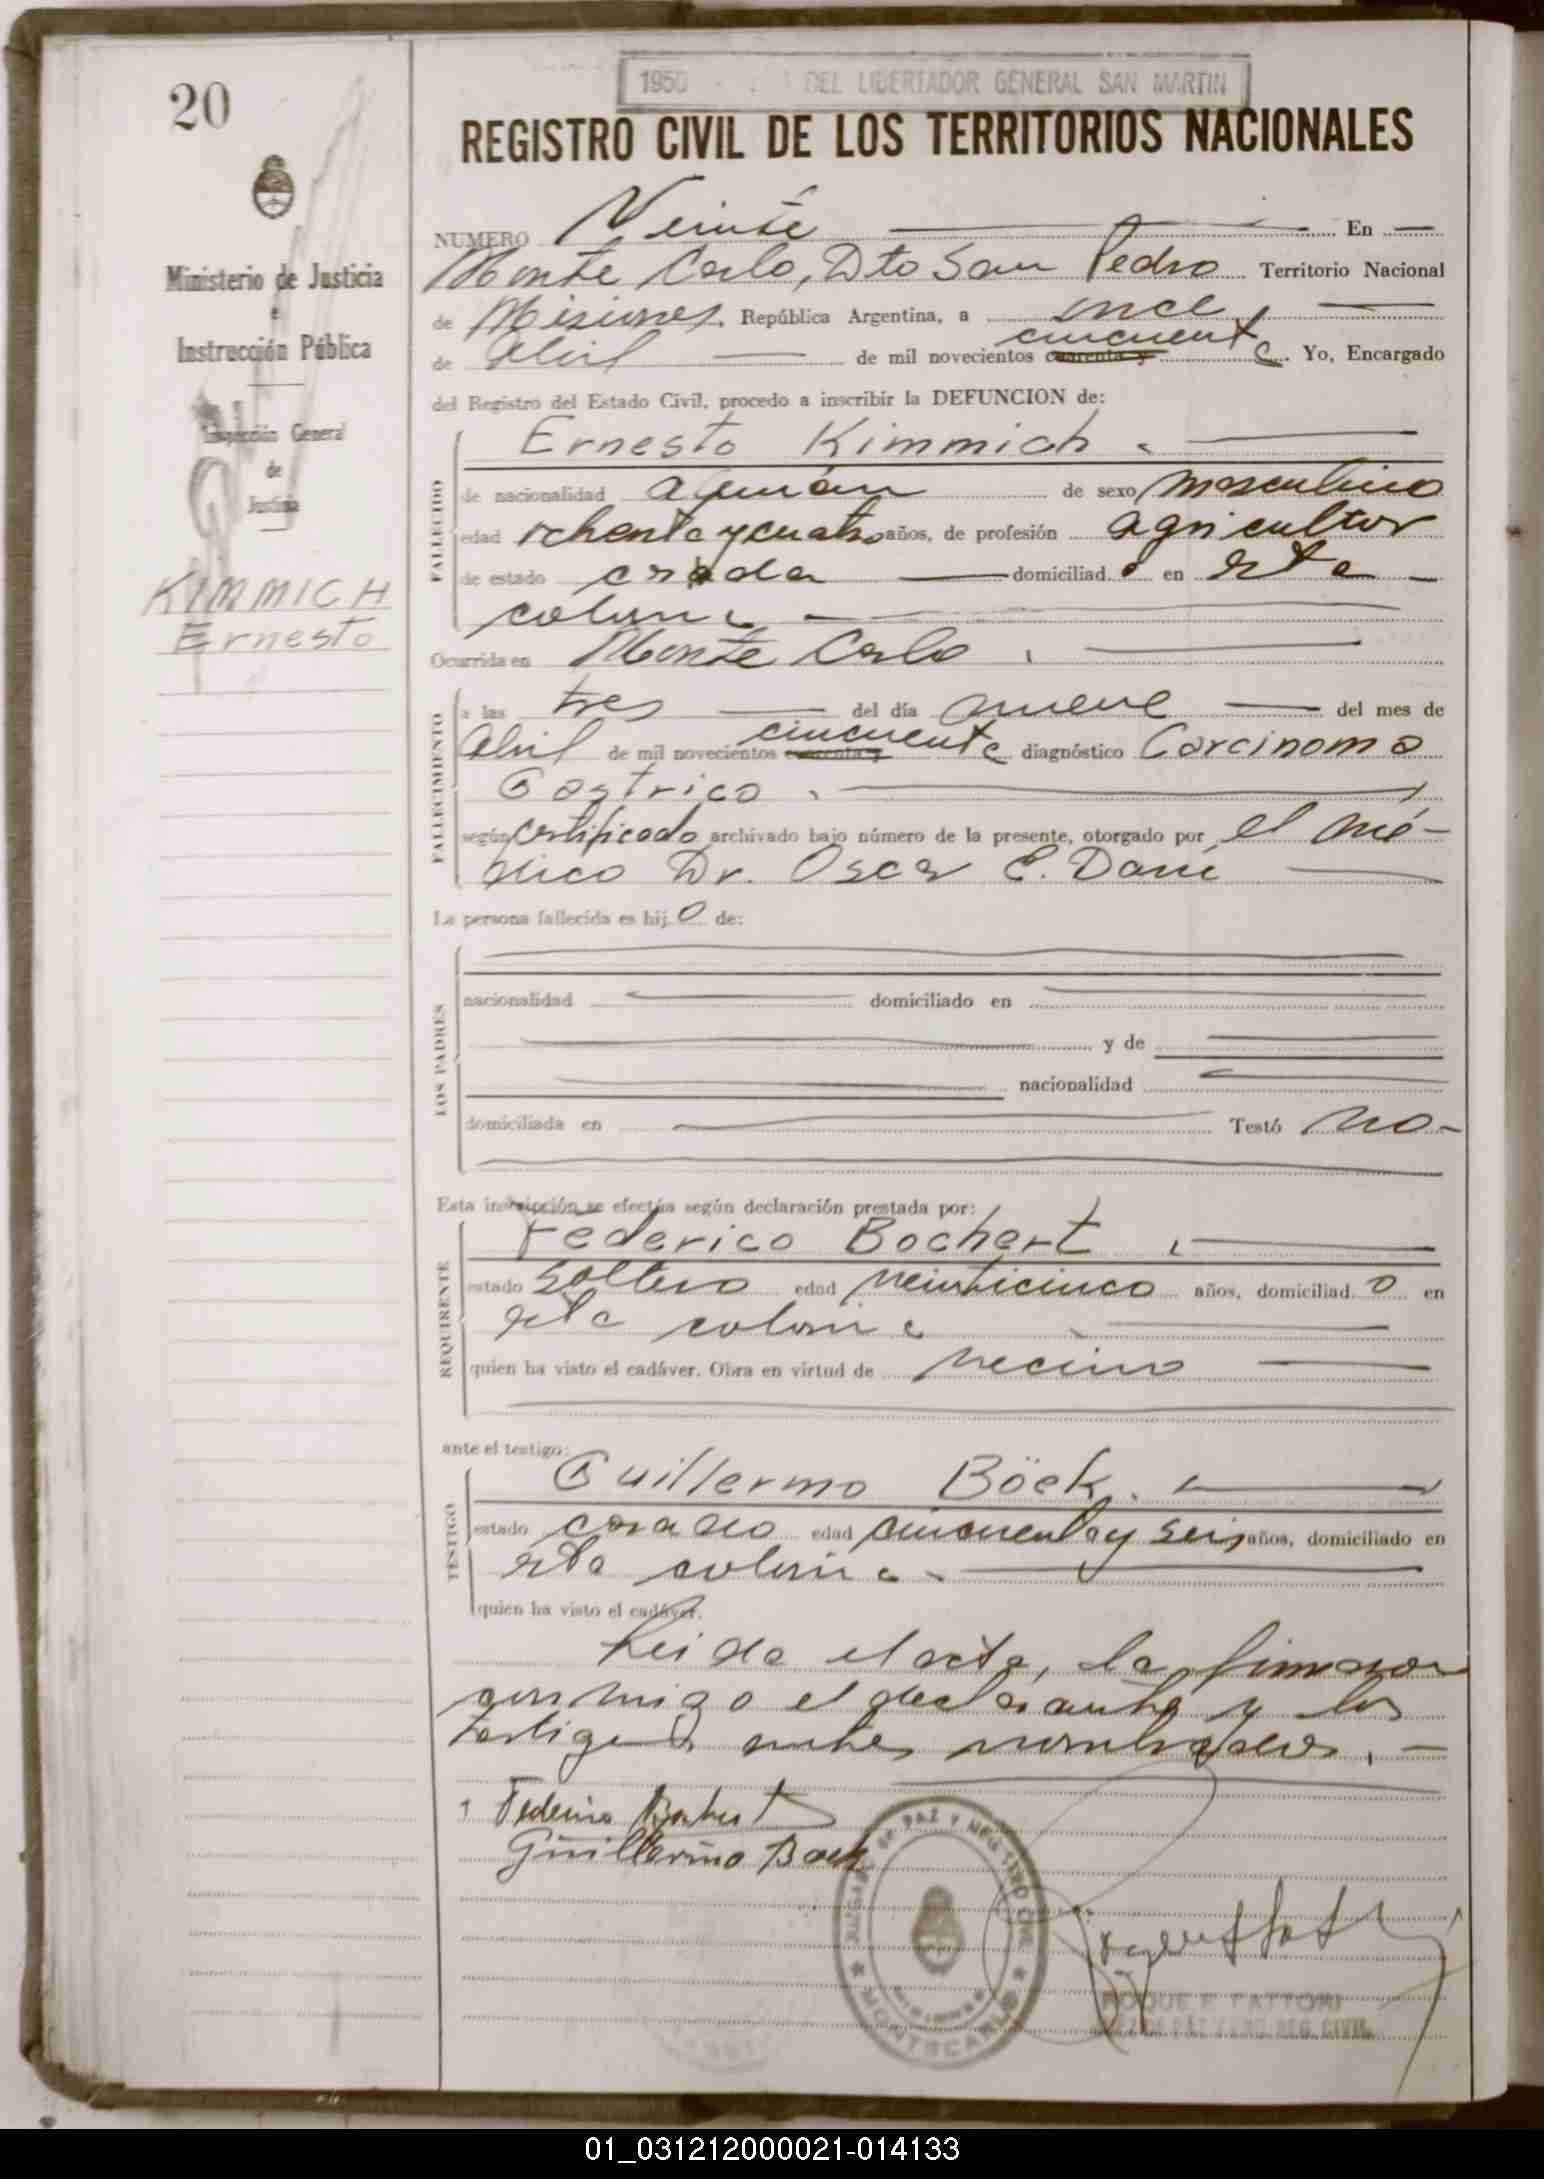 20
1950 DEL LIBERTADOR GENERAL SAN MARTIN
REGISTRO CIVIL DE LOS TERRITORIOS NACIONALES
Ministerio de Justicia
e
Instrucción Pública
Inspección General
de
Justicia
KIMMICH
Ernesto
NUMERO Veinte En
Monte Carlo, Dto San Pedro Territorio Nacional
de Misiones, República Argentina, a once
de Abril de mil novecientos cuarenta y cincuenta. Yo, Encargado
del Registro del Estado Civil, procedo a inscribir la DEFUNCION de:
FALLECIDO
Ernesto Kimmich.
de nacionalidad alemán de sexo masculino
edad ochenta y cuatro años, de profesión agricultor
de estado casado domiciliad o en esta
colonia
Ocurrida en Monte Carlo.
FALLECIMIENTO
a las tres del día nueve del mes de
Abril de mil novecientos cuarenta y cincuenta diagnóstico Carcinoma
Gastrico.
según certificado archivado bajo número de la presente, otorgado por el mé-
dico Dr. Oscar E.
La persona fallecida es hij o de:
LOS PADRES
nacionalidad domiciliado en
y de
nacionalidad
domiciliada en Testó no-
Esta inscripción se efectúa según declaración prestada por:
REQUIRENTE
Federico Bochert.
estado soltero edad veinticinco años, domiciliad o en
esta colonia
quien ha visto el cadáver. Obra en virtud de vecino
ante el testigo:
TESTIGO
Guillermo Böek.
estado casado edad cincuenta y seis años, domiciliado en
esta colonia.
quien ha visto el cadáver.
Leida el acta, la firmaron
conmigo el declarante y los
testigos antes nombrados.
Federico Bochert
Guillermo Boek
JUZGADO DE PAZ Y REGISTRO CIVIL
MISIONES
MONTECARLO
ROQUE F. FATTORI
JUEZ DE PAZ Y ENC. REG. CIVIL
01_031212000021-014133